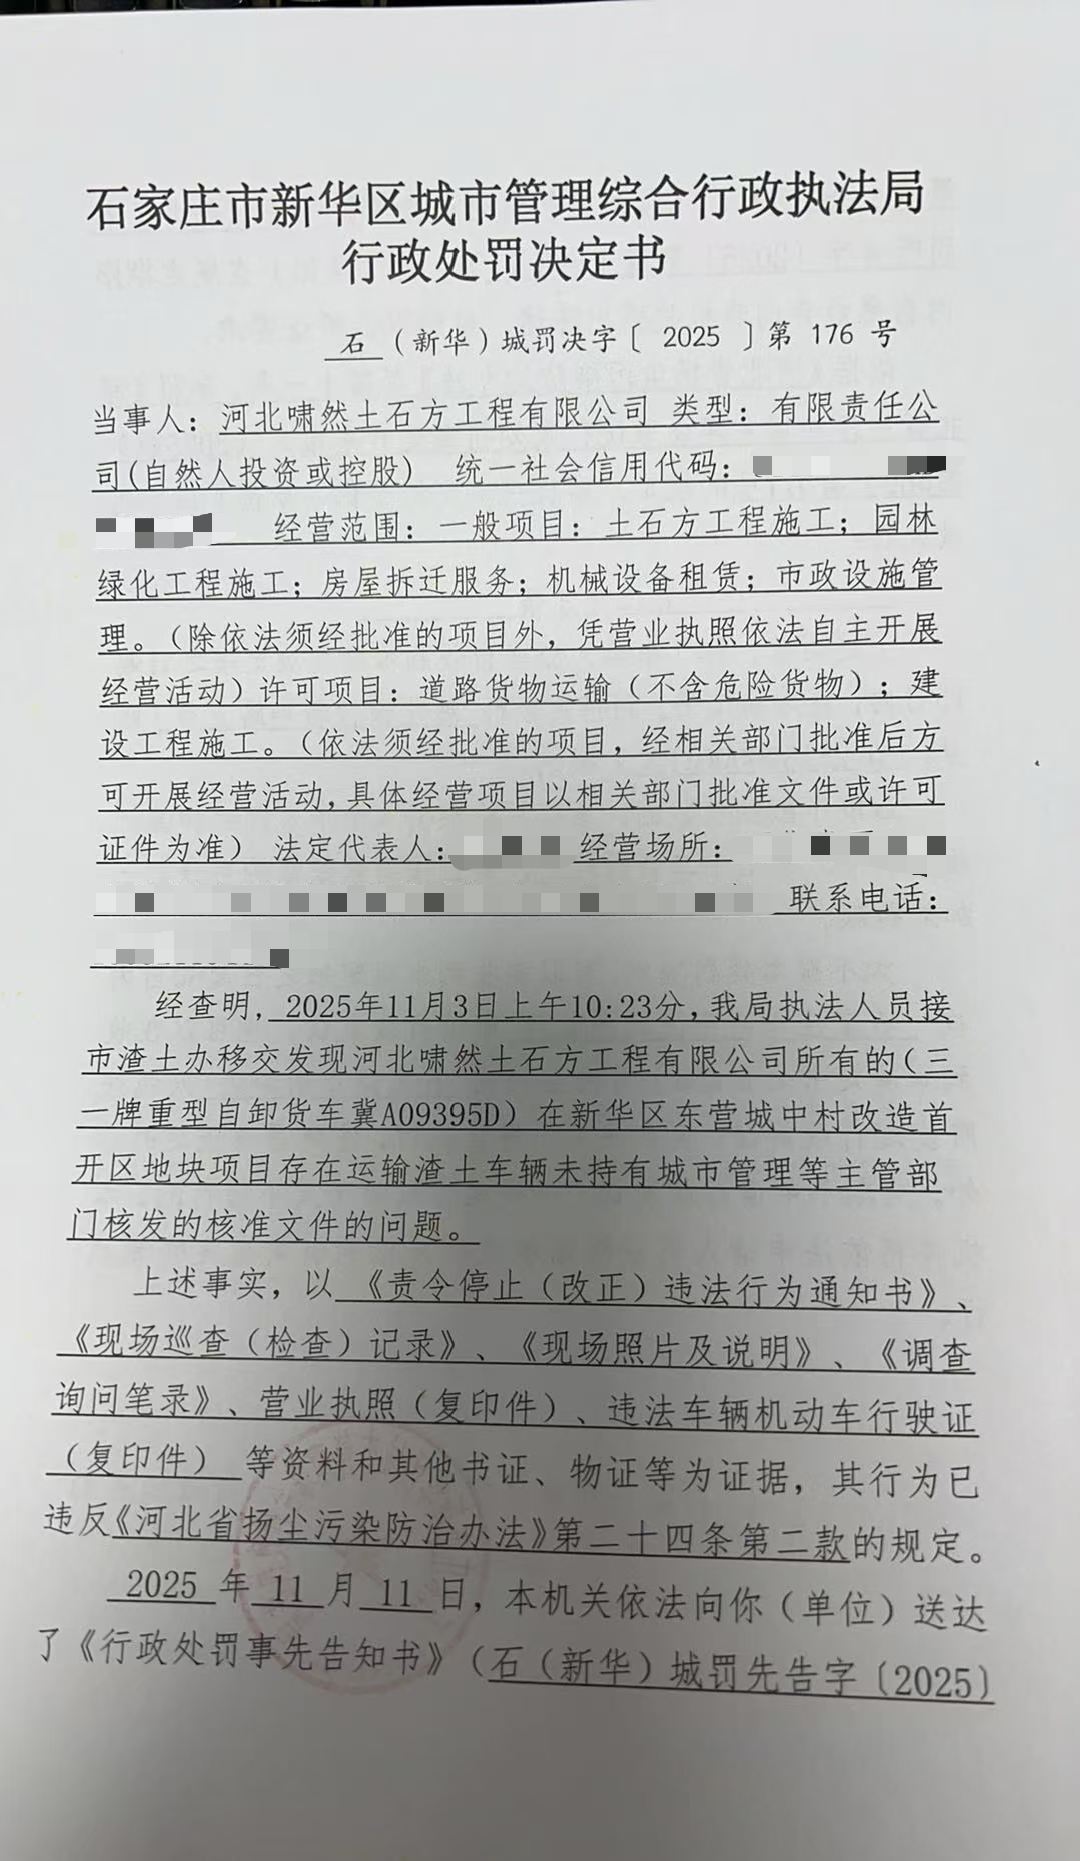 石家庄市新华区城市管理综合行政执法局
行政处罚决定书
石（新华）城罚决字〔 2025 〕第 176 号
当事人：河北啸然土石方工程有限公司 类型：有限责任公
司(自然人投资或控股) 统一社会信用代码：
经营范围：一般项目：土石方工程施工；园林
绿化工程施工；房屋拆迁服务；机械设备租赁；市政设施管
理。（除依法须经批准的项目外，凭营业执照依法自主开展
经营活动）许可项目：道路货物运输（不含危险货物）；建
设工程施工。（依法须经批准的项目，经相关部门批准后方
可开展经营活动，具体经营项目以相关部门批准文件或许可
证件为准） 法定代表人： 经营场所：
联系电话：
经查明，2025年11月3日上午10:23分，我局执法人员接
市渣土办移交发现河北啸然土石方工程有限公司所有的（三
一牌重型自卸货车冀A09395D）在新华区东营城中村改造首
开区地块项目存在运输渣土车辆未持有城市管理等主管部
门核发的核准文件的问题。
上述事实，以《责令停止（改正）违法行为通知书》、
《现场巡查（检查）记录》、《现场照片及说明》、《调查
询问笔录》、营业执照（复印件）、违法车辆机动车行驶证
（复印件） 等资料和其他书证、物证等为证据，其行为已
违反《河北省扬尘污染防治办法》第二十四条第二款的规定。
2025 年 11 月 11 日，本机关依法向你（单位）送达
了《行政处罚事先告知书》（石（新华）城罚先告字〔2025〕